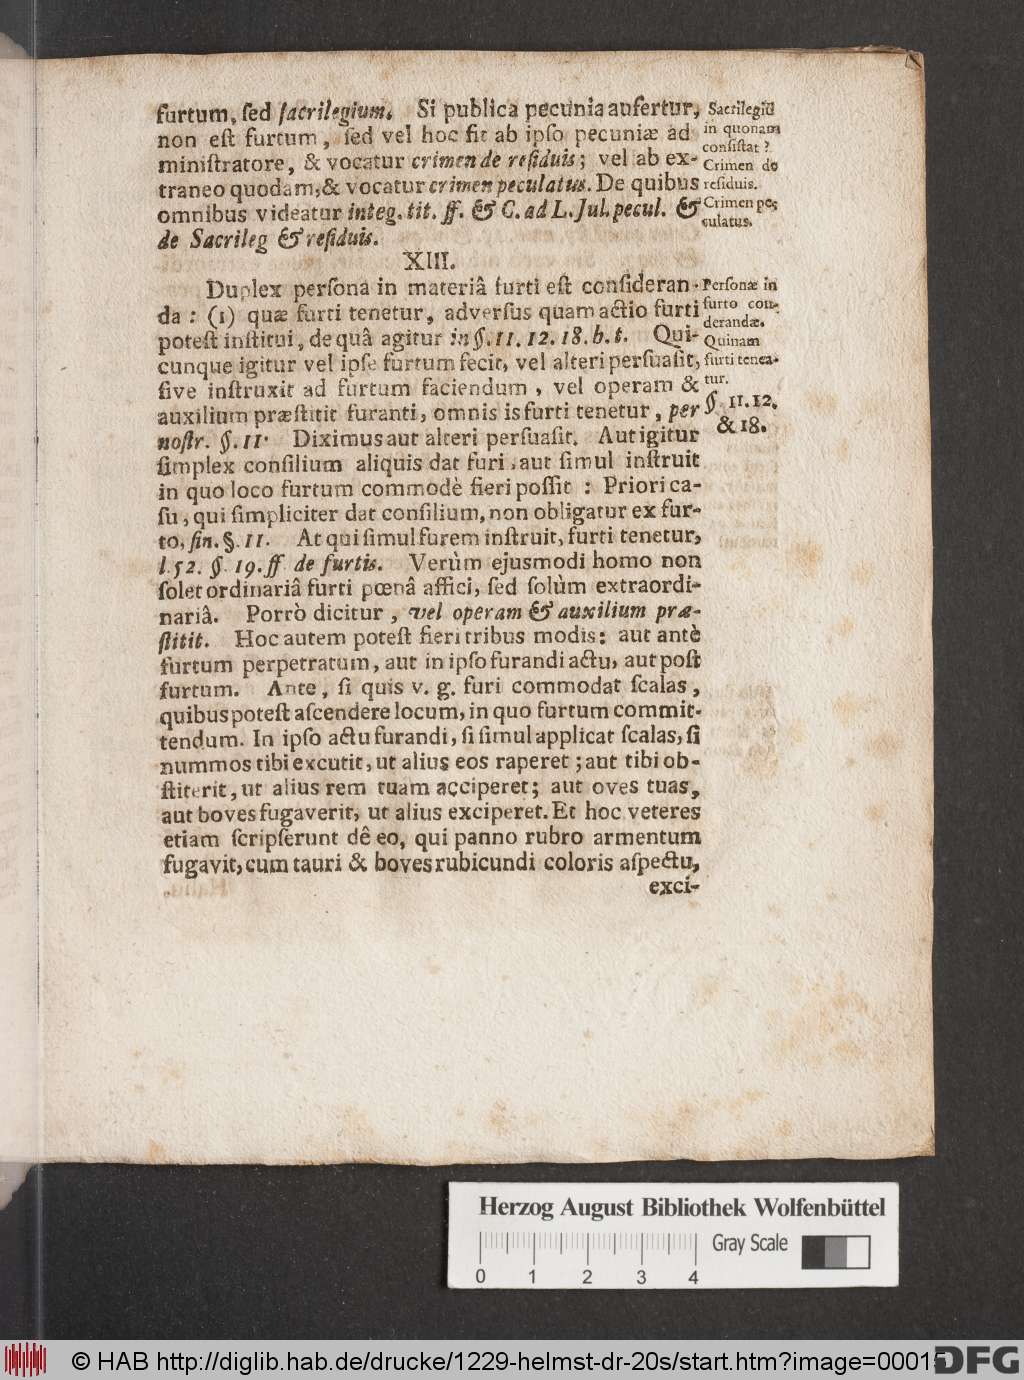 furtum, ſed ſacrilegium. Si publica pecunia aufertur,
non eſt furtum, ſed vel hoc fit ab ipſo pecuniæ ad
miniſtratore, & vocatur crimen de reſiduis; vel ab ex-
traneo quodam, & vocatur crimen peculatus. De quibus
omnibus videatur integ. tit. ff. & C. ad L. Jul. pecul. &
de Sacrileg & reſiduis.
Sacrilegiũ
in quonam
conſiſtat?
Crimen de
reſiduis.
Crimen pe-
culatus.
XIII.
Duplex perſona in materiâ furti eſt conſideran-
da: (1) quæ furti tenetur, adverſus quam actio furti
poteſt inſtitui, de quâ agitur in §. 11. 12. 18. h. t. Qui-
cunque igitur vel ipſe furtum fecit, vel alteri perſuaſit,
ſive inſtruxit ad furtum faciendum, vel operam &
auxilium præſtitit furanti, omnis is furti tenetur, per
noſtr. §. 11. Diximus aut alteri perſuaſit. Aut igitur
ſimplex conſilium aliquis dat furi, aut ſimul inſtruit
in quo loco furtum commodè fieri poſſit: Priori ca-
ſu, qui ſimpliciter dat conſilium, non obligatur ex fur-
to, fin. §. 11. At qui ſimul furem inſtruit, furti tenetur,
l. 52. §. 19. ff de furtis. Verùm ejusmodi homo non
ſolet ordinariâ furti pœnâ affici, ſed ſolùm extraordi-
nariâ. Porrò dicitur, vel operam & auxilium præ-
ſtitit. Hoc autem poteſt fieri tribus modis: aut antè
furtum perpetratum, aut in ipſo furandi actu, aut poſt
furtum. Ante, ſi quis v. g. furi commodat ſcalas,
quibus poteſt aſcendere locum, in quo furtum commit-
tendum. In ipſo actu furandi, ſi ſimul applicat ſcalas, ſi
nummos tibi excutit, ut alius eos raperet; aut tibi ob-
ſtiterit, ut alius rem tuam acciperet; aut oves tuas,
aut boves fugaverit, ut alius exciperet. Et hoc veteres
etiam ſcripſerunt dê eo, qui panno rubro armentum
fugavit, cum tauri & boves rubicundi coloris aſpectu,
exci-
Perſonæ in
furto con-
derandæ.
Quinam
furti tenea-
tur.
§. 11. 12.
& 18.
Herzog August Bibliothek Wolfenbüttel
Gray Scale
0 1 2 3 4
© HAB http://diglib.hab.de/drucke/1229-helmst-dr-20s/start.htm?image=00015
DFG